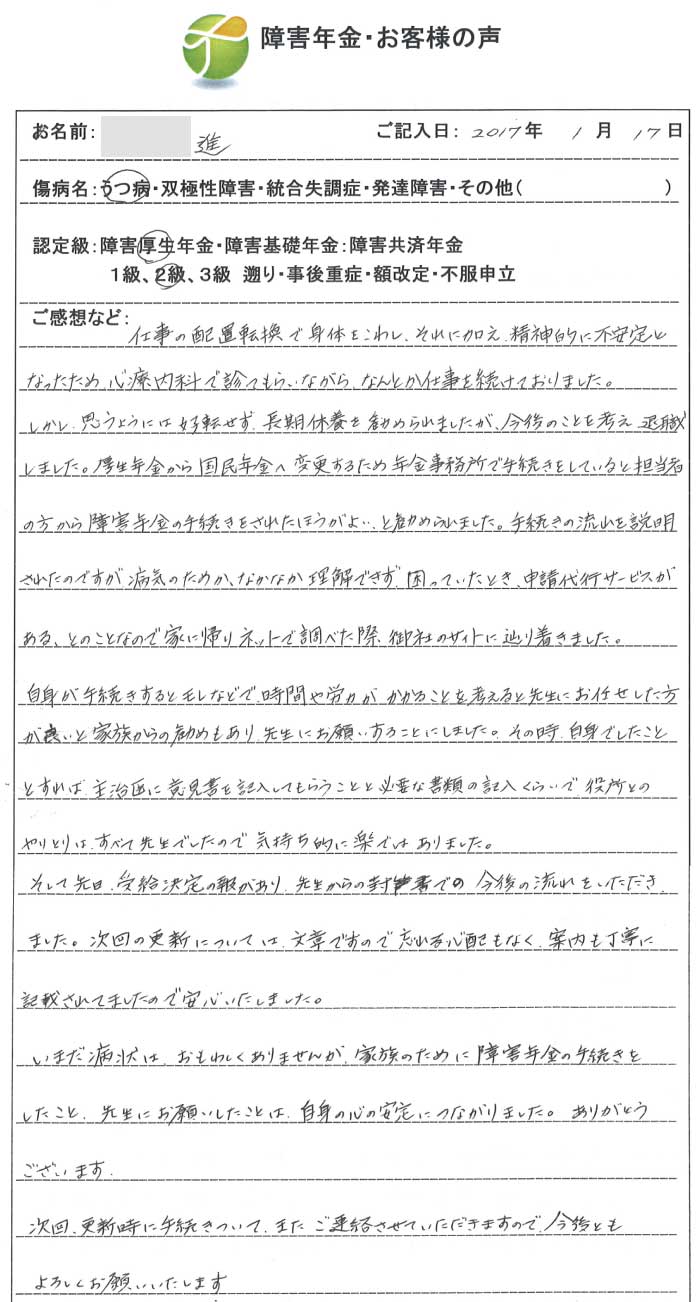 障害年金・お客様の声
お名前: 進 ご記入日: 2017年 1月 17日
傷病名:うつ病・双極性障害・統合失調症・発達障害・その他( )
認定級:障害厚生年金・障害基礎年金:障害共済年金
1級、2級、3級 遡り・事後重症・額改定・不服申立
ご感想など:
仕事の配置転換で身体をこわし、それに加え、精神的に不安定と
なったため、心療内科で診てもらいながら、なんとか仕事を続けておりました。
しかし、思うようには好転せず、長期休養を勧められましたが、今後のことを考え、退職
しました。厚生年金から国民年金へ変更するため年金事務所で手続きをしていると担当者
の方から障害年金の手続きをされたほうがよい、と勧められました。手続きの流れを説明
されたのですが、病気のためか、なかなか理解できず、困っていたとき、申請代行サービスが
ある、とのことなので家に帰りネットで調べた際、御社のサイトに辿り着きました。
自身が手続きするとモレなどで、時間や労力がかかることを考えると先生にお任せした方
が良いと家族からの勧めもあり、先生にお願いすることにしました。その時、自身でしたこと
とすれば、主治医に意見書を記入してもらうことと必要な書類の記入くらいで、役所との
やりとりは、すべて先生でしたので気持ち的に楽ではありました。
そして先日、受給決定の報があり、先生からの封書での今後の流れをいただき
ました。次回の更新については、文章ですので忘れる心配もなく、案内も丁寧に
記載されてましたので安心いたしました。
いまだ病状は、おもわしくありませんが、家族のために障害年金の手続きを
したこと、先生にお願いしたことは、自身の心の安定につながりました。ありがとう
ございます。
次回、更新時に手続きついて、またご連絡させていただきますので、今後とも
よろしくお願いいたします